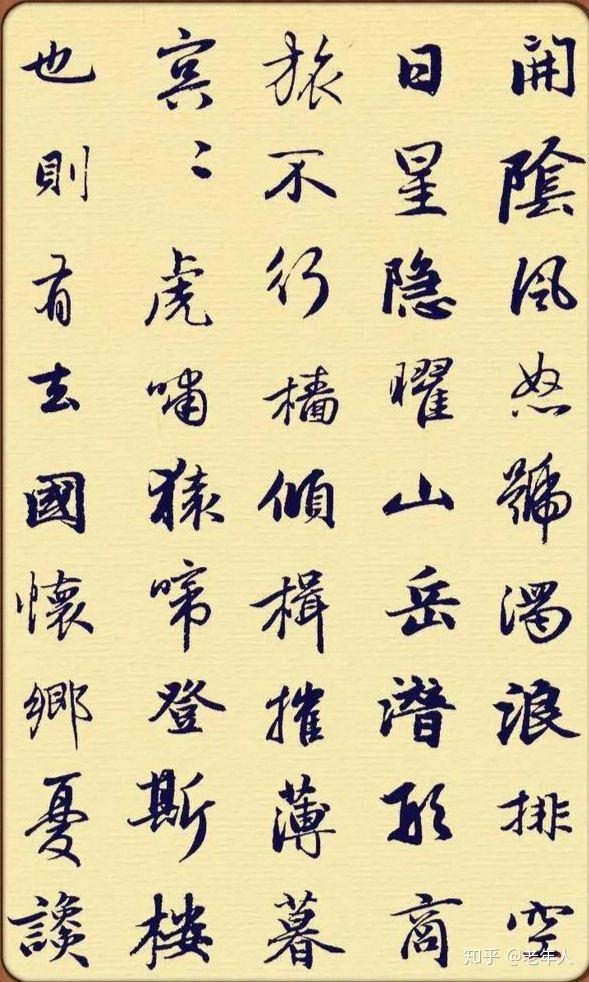 開陰風怒號濁浪排空
日星隐曜山岳潛形商
旅不行檣傾楫摧薄暮
冥〻虎嘯猿啼登斯樓
也則有去國懷鄉憂讒
知乎 @老年人